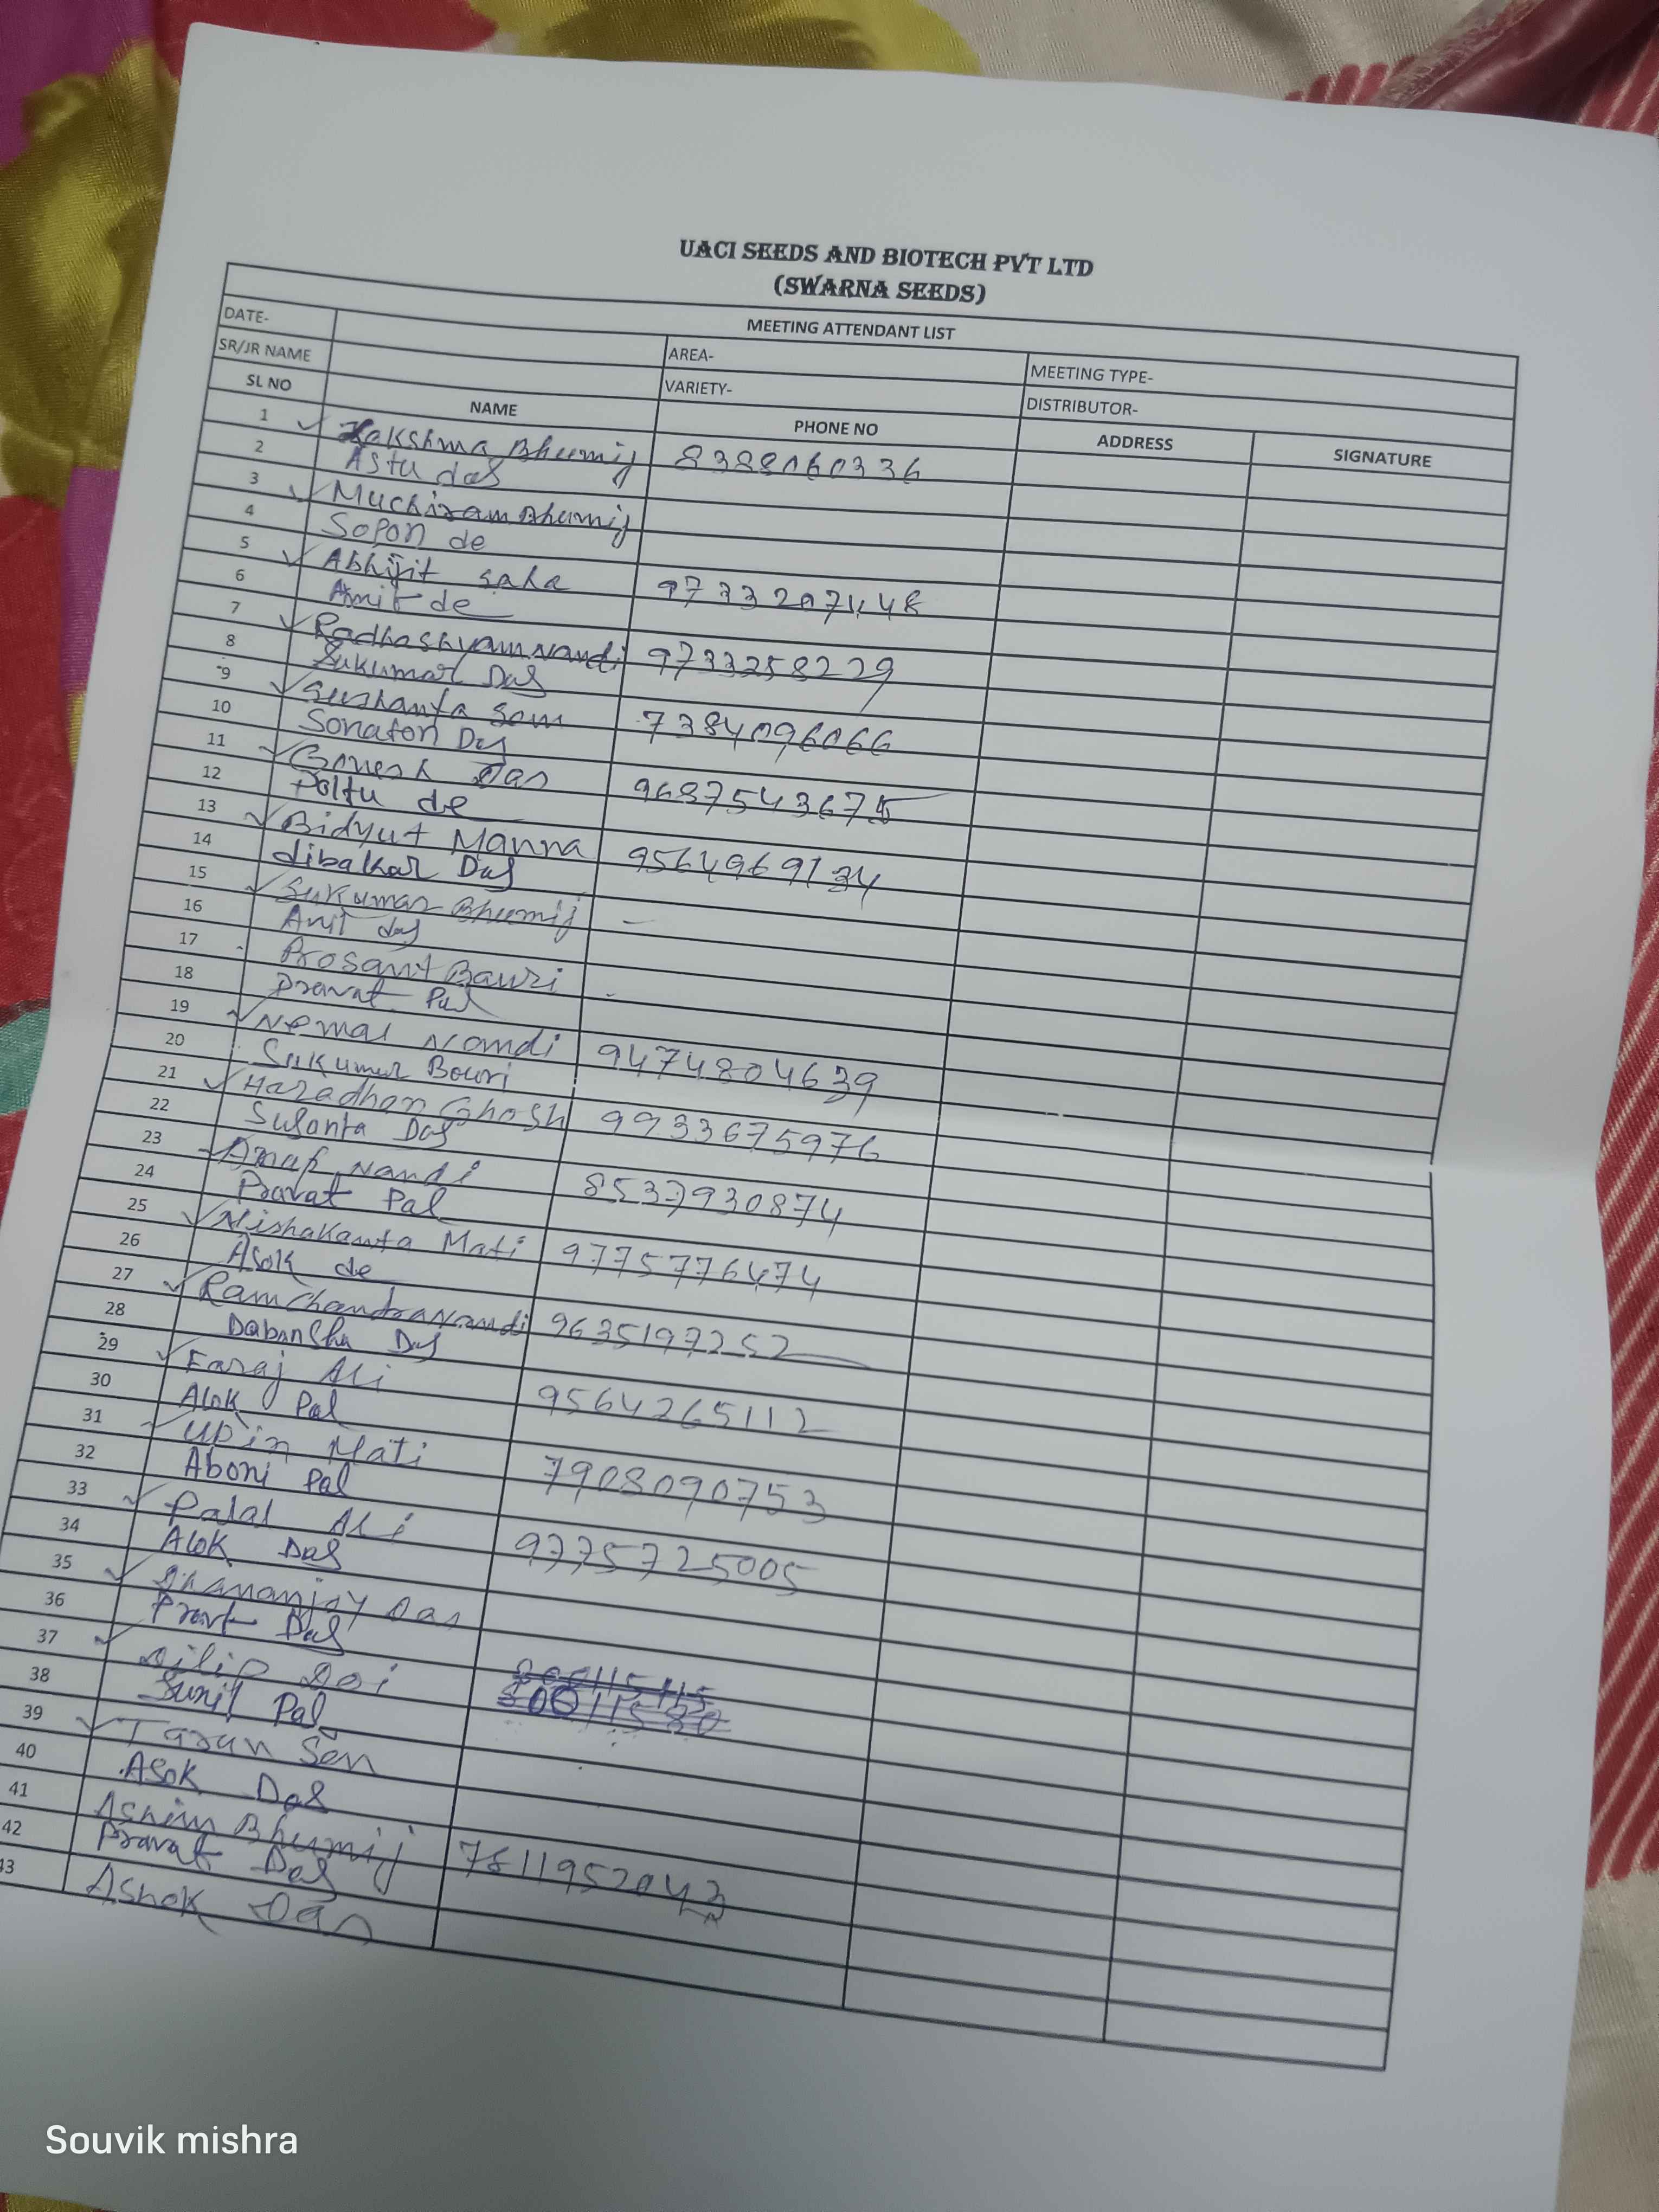 UACI SEEDS AND BIOTECH PVT LTD
(SWARNA SEEDS)
MEETING ATTENDANT LIST
DATE- AREA- MEETING TYPE-
SR/JR NAME VARIETY- DISTRIBUTOR-
SL NO NAME PHONE NO ADDRESS SIGNATURE
1 Lakshma Bhumij 8388060336
2 Astu das
3 Muchiram Bhumij
4 Sopon de
5 Abhijit saha
6 Amit de
7 Radhashyam Nandi 9733258229
8 Sukumar Das
9 Sushanta Som 7384096066
10 Sonaton Das
11 Gonesh Das 9687543675
12 Poltu de
13 Bidyut Manna 9564969134
14 dibakar Das
15 Sukumar Bhumij -
16 Anil das
17 Prosant Bauri
18 Pravat Pal
19 Nemai Nandi 9474804639
20 Sukumar Bouri
21 Haradhon Ghosh 9933675976
22 Susanta Das
23 Nandi 8537930874
24 Pravat Pal
25 Nishakanta Mati 9775776474
26 Asok de
27 Ram Chandra Nandi 9635197252
28 Das
29 Faraj Ali 9564265112
30 Alok Pal
31 Upin Mati 7908090753
32 Aboni Pal
33 Palal Ali 9775725005
34 Alok Das
35 Dhananjoy Das
36 Das
37 Dilip Doi
38 Sunil Pal
39 Tarun Sen
40 Asok Das
41 Ashim Bhumij
42 Pravat Das
43 Ashok Das
Souvik mishra